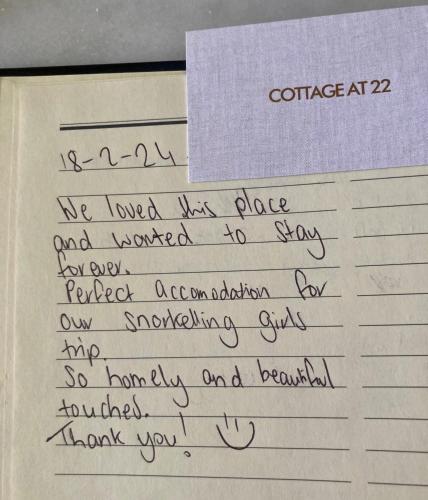 COTTAGE AT 22
18-2-24
We loved this place
and wanted to stay
forever.
Perfect accomodation for
our snorkelling girls
trip.
So homely and beautiful
touches.
Thank you!